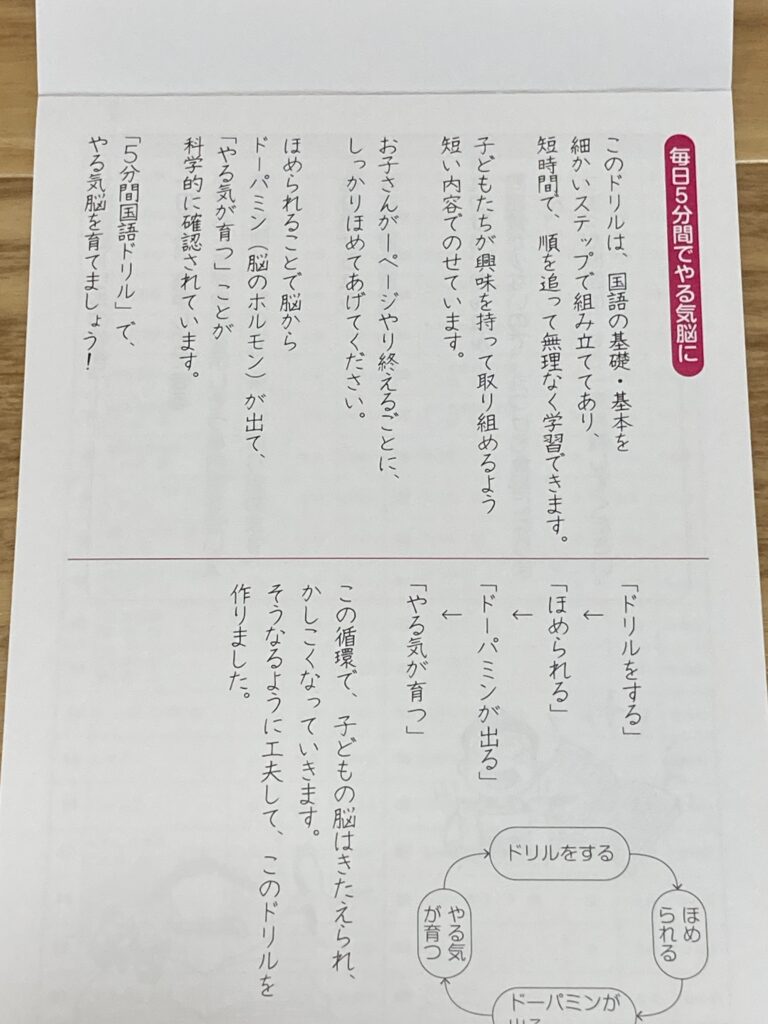 毎日5分間でやる気脳に
このドリルは、国語の基礎・基本を
細かいステップで組み立ててあり、
短時間で、順を追って無理なく学習できます。
子どもたちが興味を持って取り組めるよう
短い内容でのせています。
お子さんが一ページやり終えるごとに、
しっかりほめてあげてください。
ほめられることで脳から
ドーパミン(脳のホルモン)が出て、
「やる気が育つ」ことが
科学的に確認されています。
「5分間国語ドリル」で、
やる気脳を育てましょう!
「ドリルをする」
↓
「ほめられる」
↓
「ドーパミンが出る」
↓
「やる気が育つ」
この循環で、子どもの脳はきたえられ、
かしこくなっていきます。
そうなるように工夫して、このドリルを
作りました。
ドリルをする
ほめ
られる
ドーパミンが
出る
やる気
が育つ